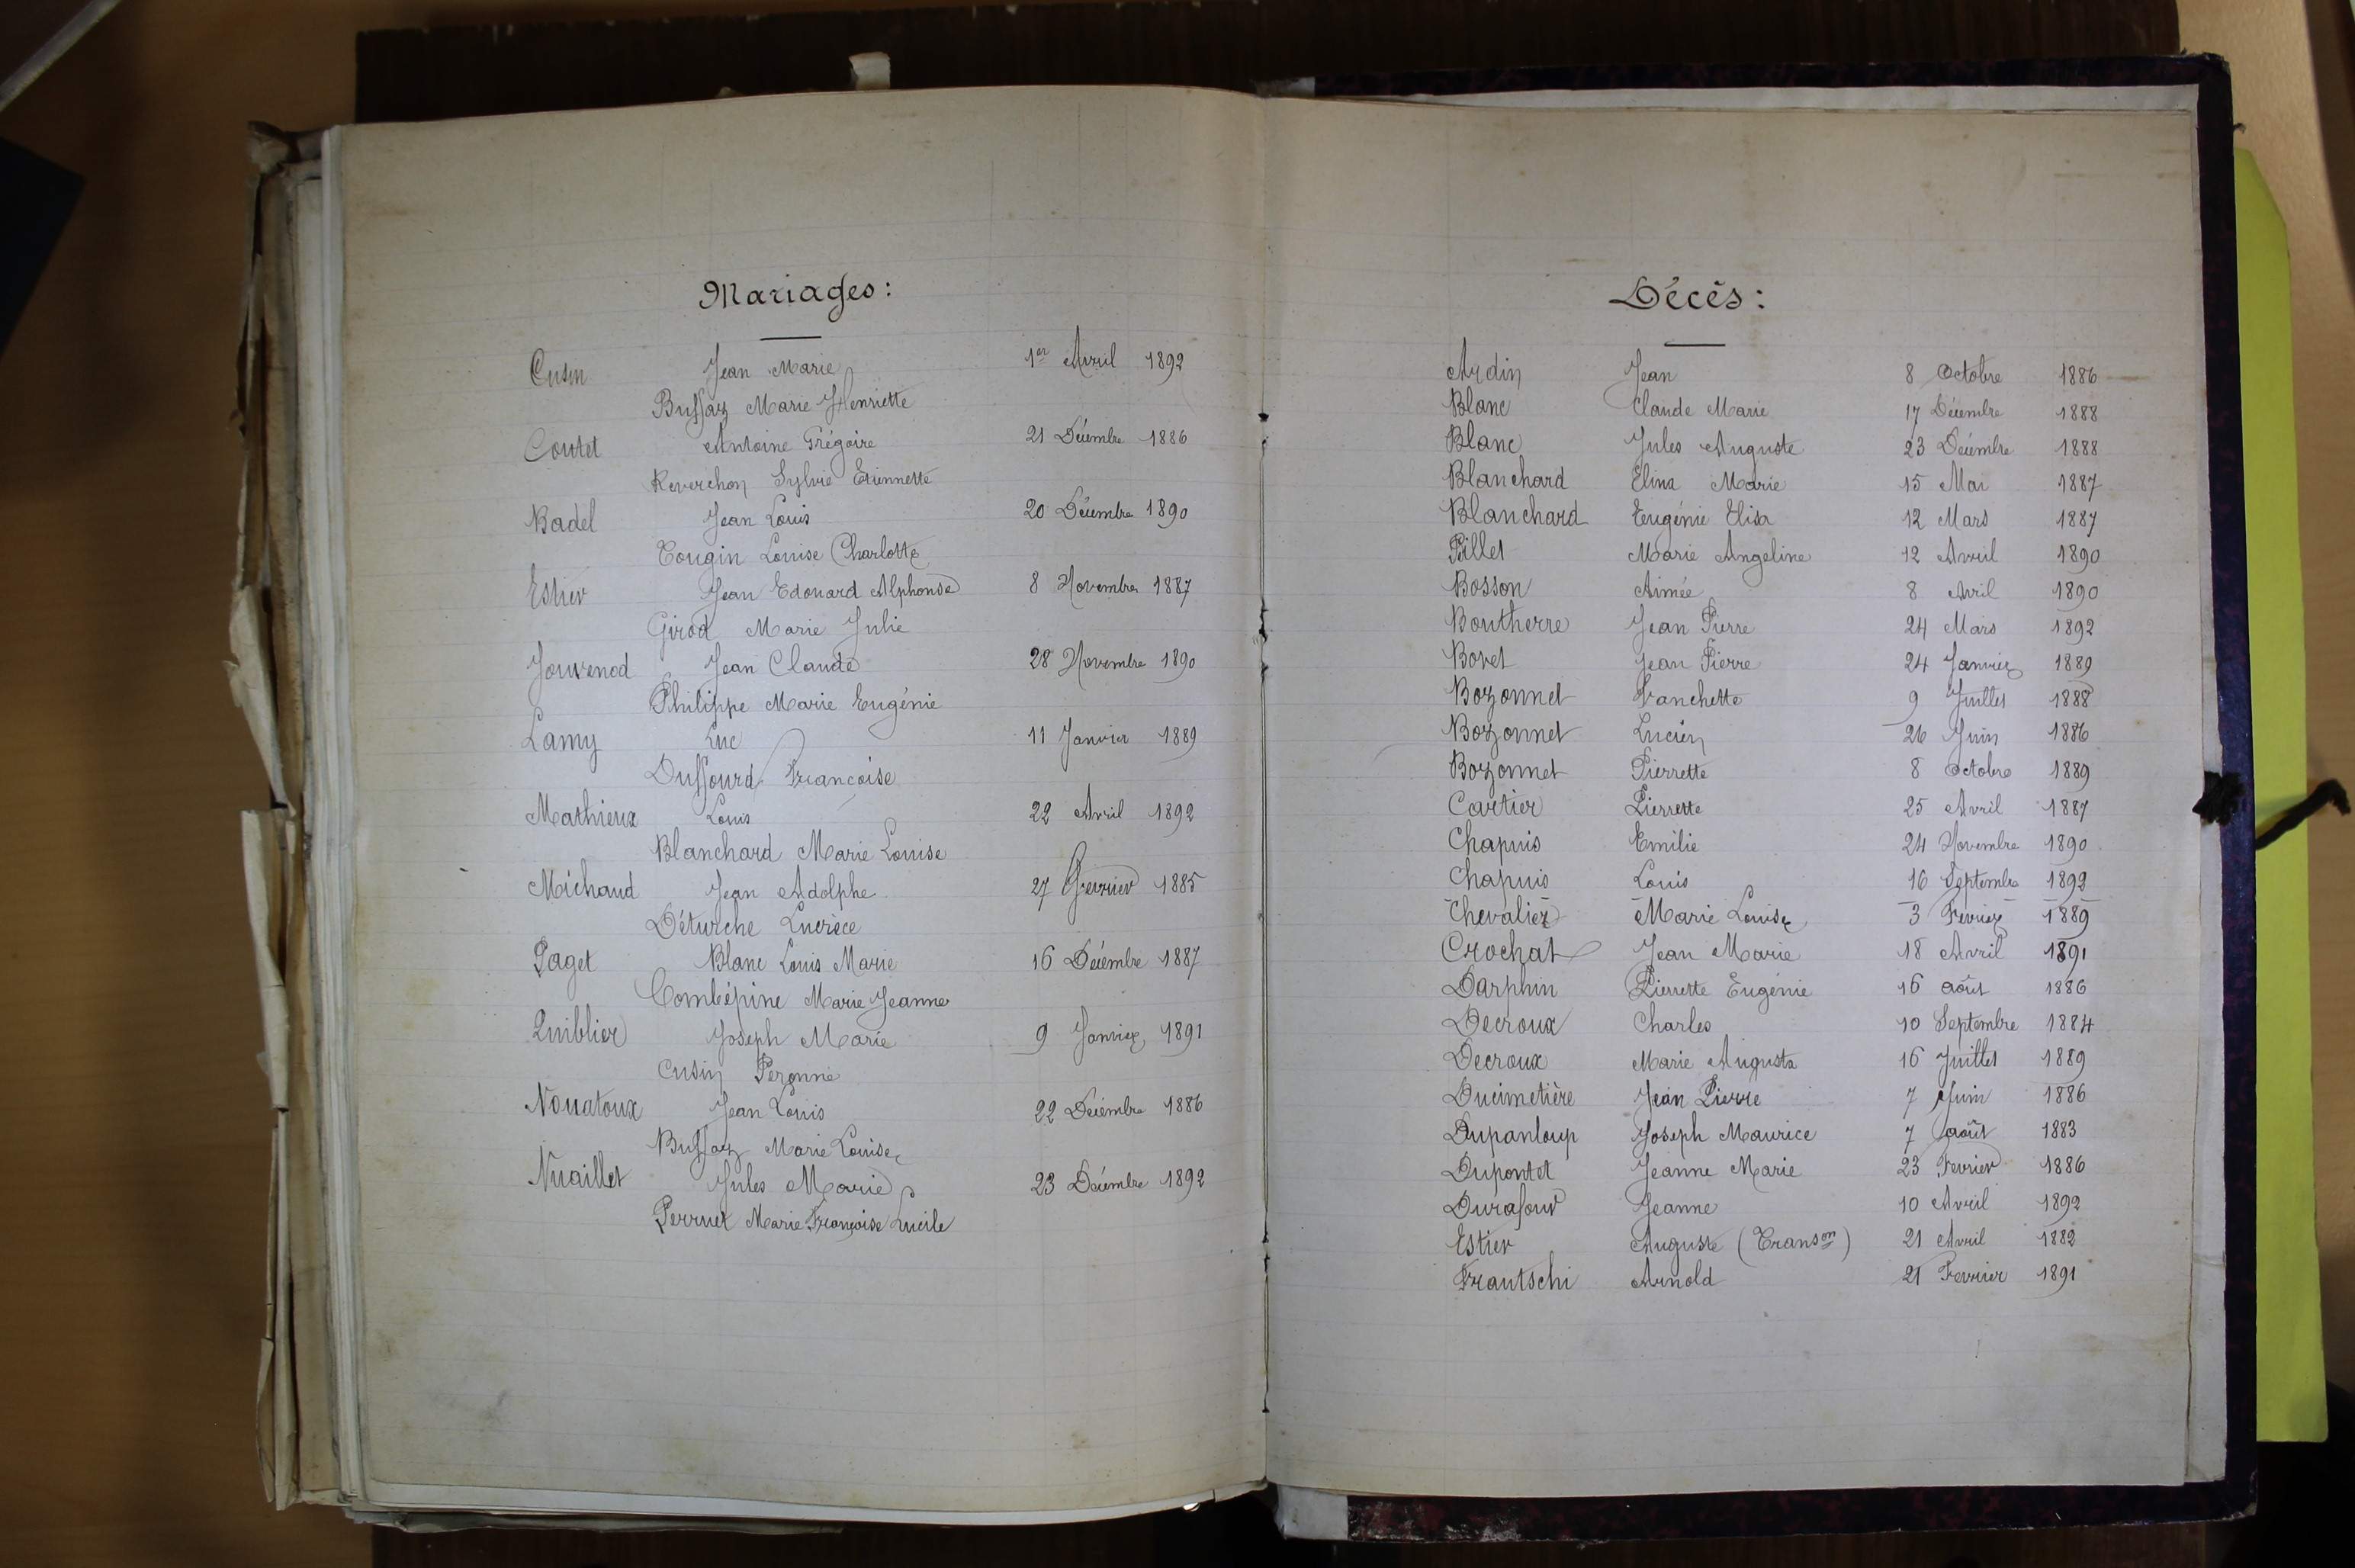 Mariages:
Cusin Jean Marie 1er Avril 1892
Bussaz Marie Henriette
Coutet Antoine Grégoire 21 Décembre 1886
Reverchon Sylvie Etiennette
Badel Jean Louis 20 Décembre 1890
Cougin Louise Charlotte
Estier Jean Edouard Alphonse 8 Novembre 1887
Girod Marie Julie
Jouvenod Jean Claude 28 Novembre 1890
Philippe Marie Eugénie
Lamy Luc 11 Janvier 1889
Dussourd Francoise
Mathieux Louis 22 Avril 1892
Blanchard Marie Louise
Michaud Jean Adolphe 27 Fevrier 1885
Déturche Lucrèce
Paget Blanc Louis Marie 16 Décembre 1887
Combépine Marie Jeanne
Quiblier Joseph Marie 9 Janvier 1891
Cusin Peronne
Nouatoux Jean Louis 22 Décembre 1886
Bussaz Marie Louise
Nuaillet Jules Marie 23 Décembre 1892
Perruet Marie Françoise Lucile
Décés:
Ardin Jean 8 Octobre 1886
Blanc Claude Marie 17 Décembre 1888
Blanc Jules Auguste 23 Décembre 1888
Blanchard Elina Marie 15 Mai 1887
Blanchard Eugénie Elisa 12 Mars 1887
Pillet Marie Angeline 12 Avril 1890
Bosson Aimée 8 Avril 1890
Boutherre Jean Pierre 24 Mars 1892
Bovet Jean Pierre 24 Janvier 1889
Bozonnet Fanchette 9 Juillet 1888
Bozonnet Lucien 26 Juin 1886
Bozonnet Pierrette 8 Octobre 1889
Cartier Pierrette 25 Avril 1887
Chapuis Emilie 24 Novembre 1890
Chapuis Louis 16 Septembre 1892
Chevalier Marie Louise 3 Fevrier 1889
Crochat Jean Marie 18 Avril 1891
Darphin Pierrette Eugénie 16 août 1886
Decroux Charles 10 Septembre 1884
Decroux Marie Augusta 16 Juillet 1889
Ducimetière Jean Pierre 7 Juin 1886
Dupanloup Joseph Maurice 7 août 1883
Dupontet Jeanne Marie 23 Fevrier 1886
Durafour Jeanne 10 Avril 1892
Estier Auguste (Transon) 21 Avril 1882
Frautschi Arnold 21 Fevrier 1891